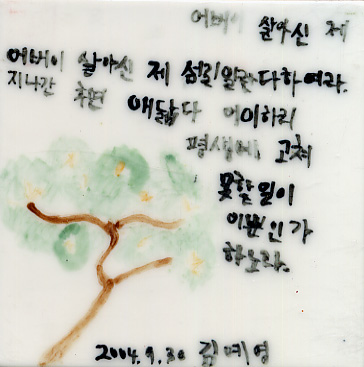 어버이 살아신 제
어버이 살아신 제 섬길일란 다하여라.
지나간 후면 애닯다 어이하리
평생에 고쳐
못할일이
이뿐인가
하노라.
2004.9.30 김예영